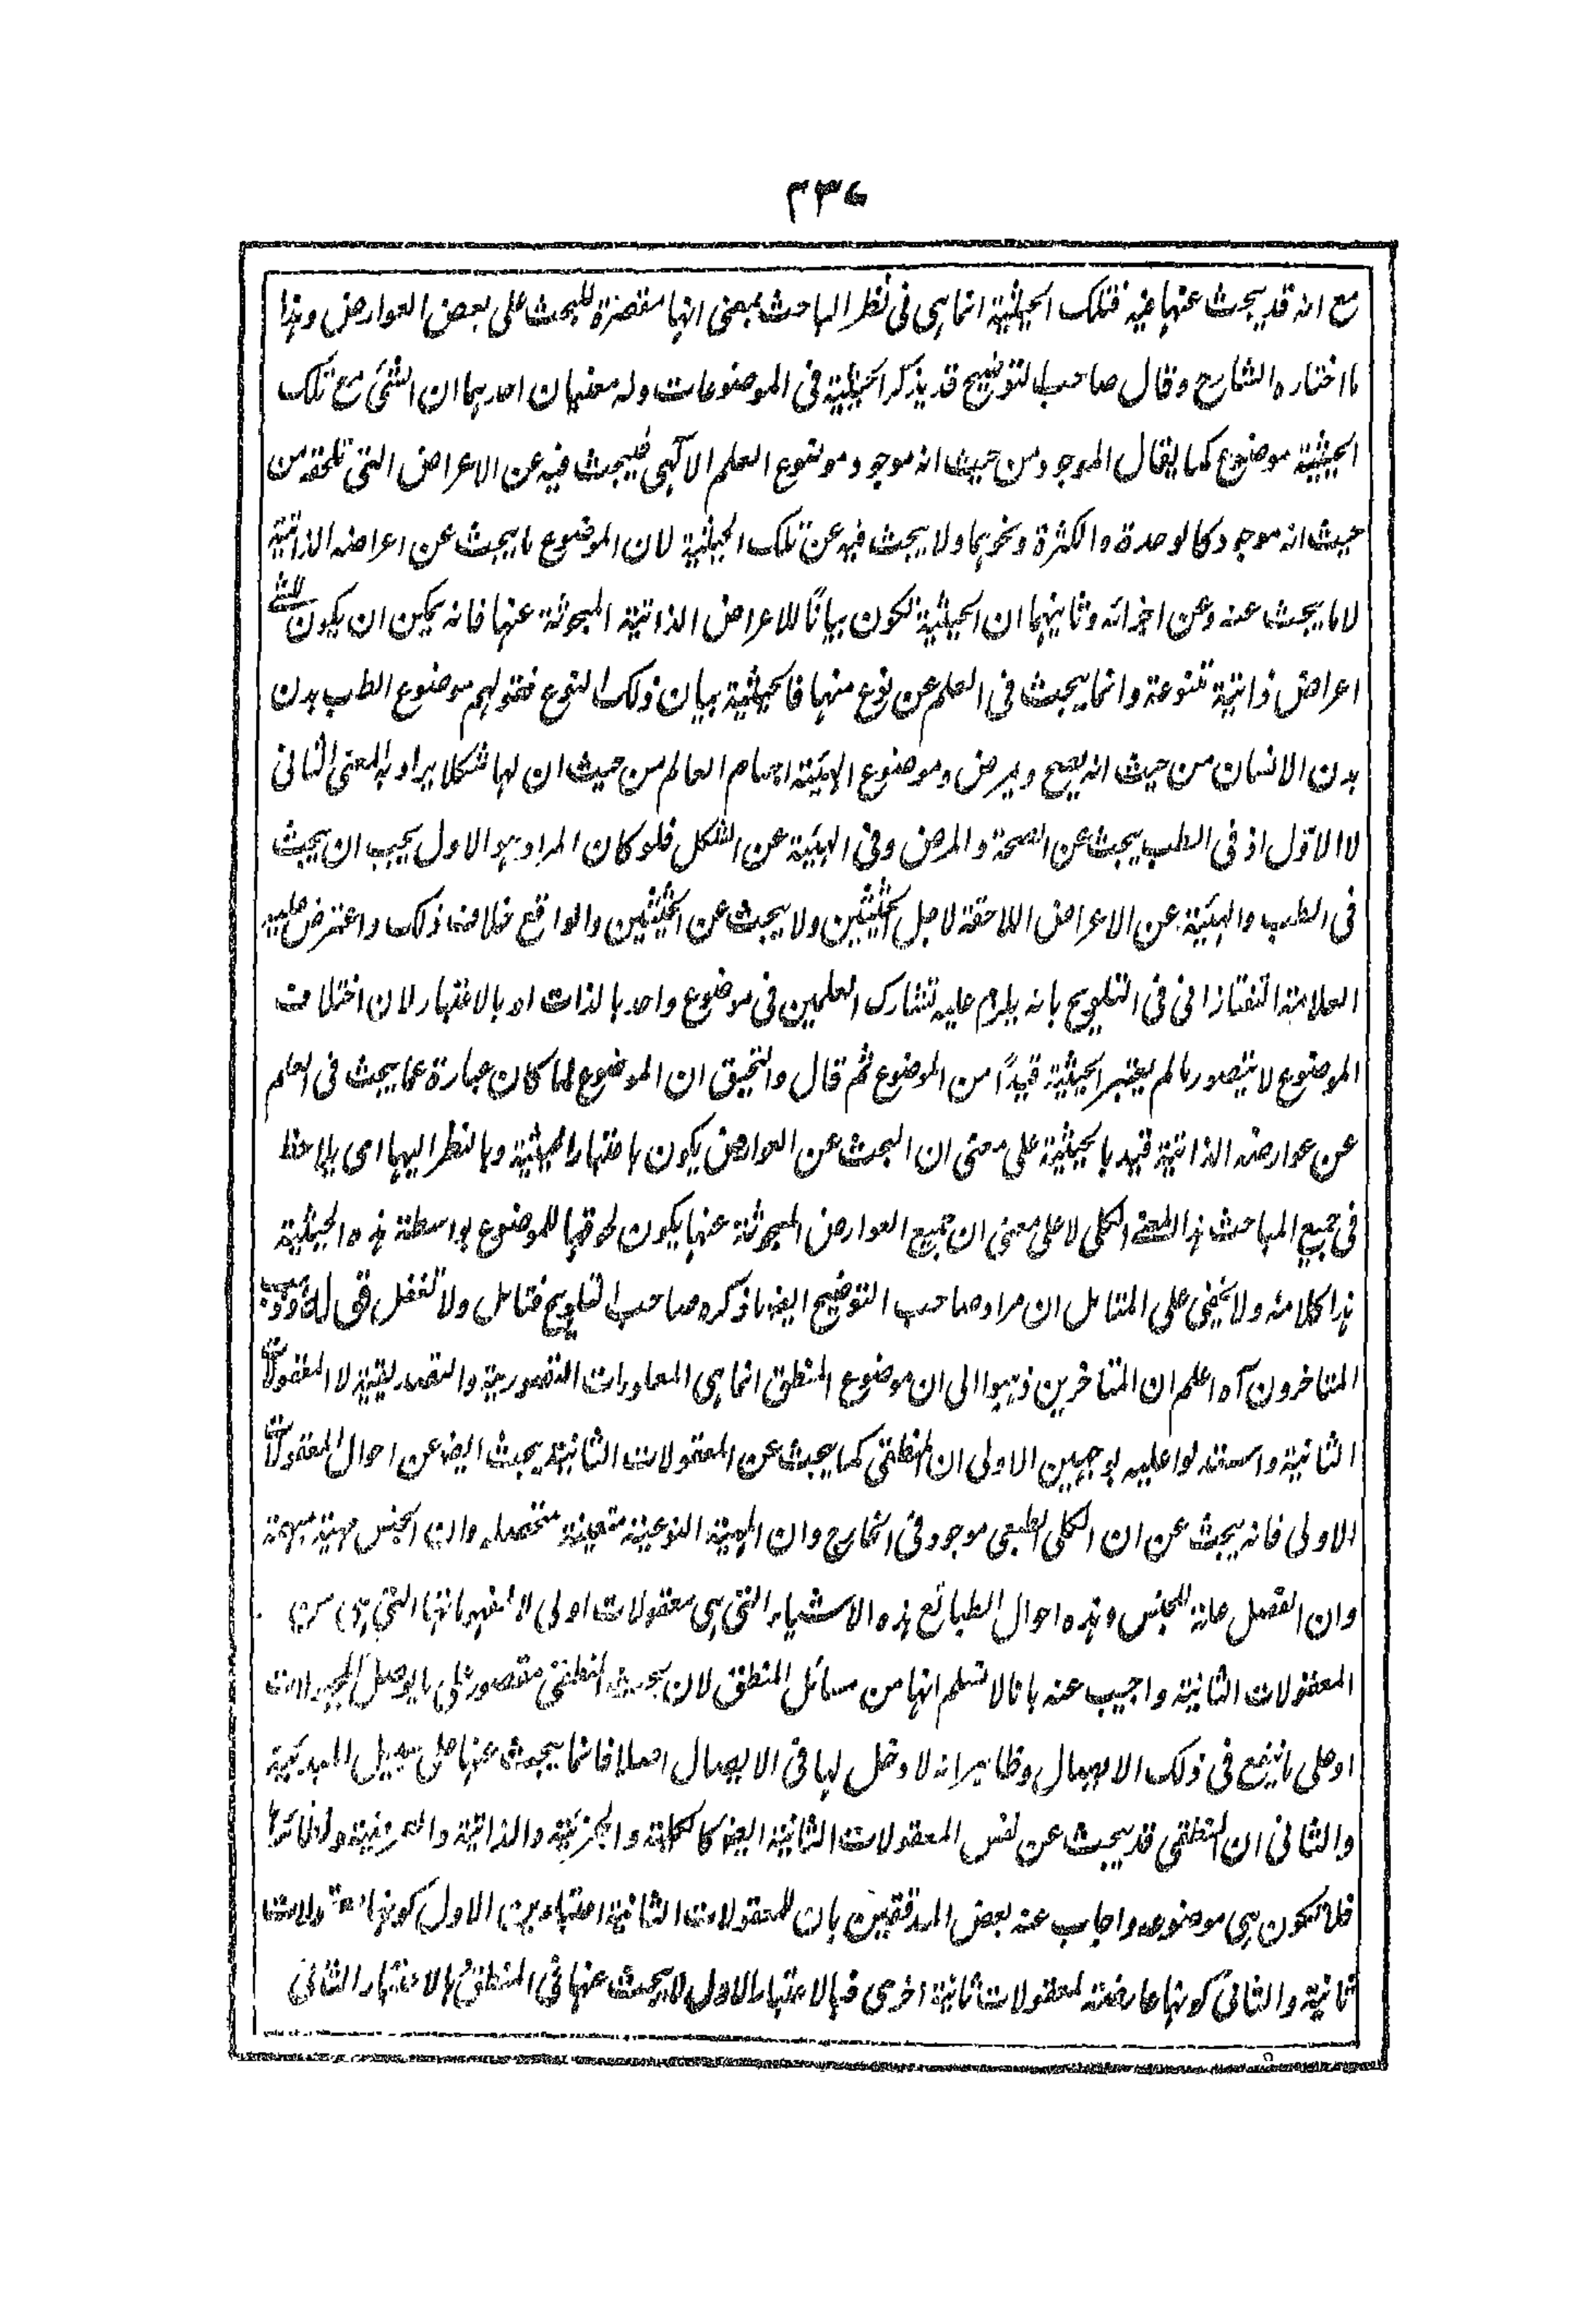 ٢٣٦
مع انه قد يبحث عنها فيه فتلك الحيثية انما هى فى نظر الباحث بمعنى انها مقتصرة للبحث على بعض العوارض وهذا
ما اختاره الشارح وقال صاحب التوضيح قد يذكر الحيثية فى الموضوعات وله معنيان احدهما ان الشئ مع تلك
الحيثية موضوع كما يقال الموجود من حيث انه موجود موضوع العلم الالهى فيبحث فيه عن الاعراض التى تلحقه من
حيث انه موجود كالوحدة والكثرة ونحوهما ولا يبحث فيه عن تلك الحيثية لان الموضوع ما يبحث عن اعراضه الذاتية
لا ما يبحث عنه وعن اجزائه وثانيهما ان الحيثية تكون بيانًا للاعراض الذاتية المبحوثة عنها فانه يمكن ان يكون للشئ
اعراض ذاتية متنوعة وانما يبحث فى العلم عن نوع منها فالحيثية بيان ذلك النوع فقولهم موضوع الطب بدن
بدن الانسان من حيث انه يصح ويمرض وموضوع الهيئة اجسام العالم من حيث ان لها شكلا يراد به المعنى الثانى
لا الاول اذ فى الطب يبحث عن الصحة والمرض وفى الهيئة عن الشكل فلو كان المراد هو الاول يجب ان يبحث
فى الطب والهيئة عن الاعراض اللاحقة لاجل الحيثيتين ولا يبحث عن الحيثيتين والواقع خلاف ذلك واعترض عليه
العلامة التفتازانى فى التلويح بانه يلزم عليه تشارك العلمين فى موضوع واحد بالذات او بالاعتبار لان اختلاف
الموضوع لا يتصور ما لم يعتبر الحيثية قيدًا من الموضوع ثم قال والتحقيق ان الموضوع لما كان عبارة عما يبحث فى العلم
عن عوارضه الذاتية قيد بالحيثية على معنى ان البحث عن العوارض يكون باعتبار الحيثية وبالنظر اليها اى يلاحظ
فى جميع المباحث هذا المعنى الكلى لا على معنى ان جميع العوارض المبحوثة عنها يكون لحوقها للموضوع بواسطة هذه الحيثية
هذا كلامه ولا يخفى على المتامل ان مراد صاحب التوضيح ايضا ما ذكره صاحب التلويح فتامل ولا تغفل قوله وذهب
المتاخرون آه اعلم ان المتاخرين ذهبوا الى ان موضوع المنطق انما هى المعلومات التصورية والتصديقية لا المعقولات
الثانية واستدلوا عليه بوجهين الاولى ان المنطقى كما يبحث عن المعقولات الثانية يبحث ايضا عن احوال المعقولات
الاولى فانه يبحث عن ان الكلى الطبعى موجود فى الخارج وان المهية النوعية متعينة متحصلة وان الجنس مهية مبهمة
وان الفصل علة للجنس وهذه احوال الطبائع هذه الاشياء التى هى معقولات اولى لا لمفهوماتها التى هى من
المعقولات الثانية واجيب عنه بانا لا نسلم انها من مسائل المنطق لان بحث المنطقى مقصور على ما يوصل المجهولات
او على ما ينفع فى ذلك الايصال وظاهر انه لا دخل لها فى الايصال اصلا فانما يبحث عنها على سبيل المبدئية
والثانى ان المنطقى قد يبحث عن نفس المعقولات الثانية ايضا كالكلية والجزئية والذاتية والعرضية ونظائرها
فلا تكون هى موضوعه واجاب عنه بعض المدققين بان للمعقولات الثانية اعتبارين الاول كونها معقولات
ثانية والثانى كونها عارضة لمعقولات ثانية اخرى فبالاعتبار الاول لا يبحث عنها فى المنطق بالاعتبار الثانى